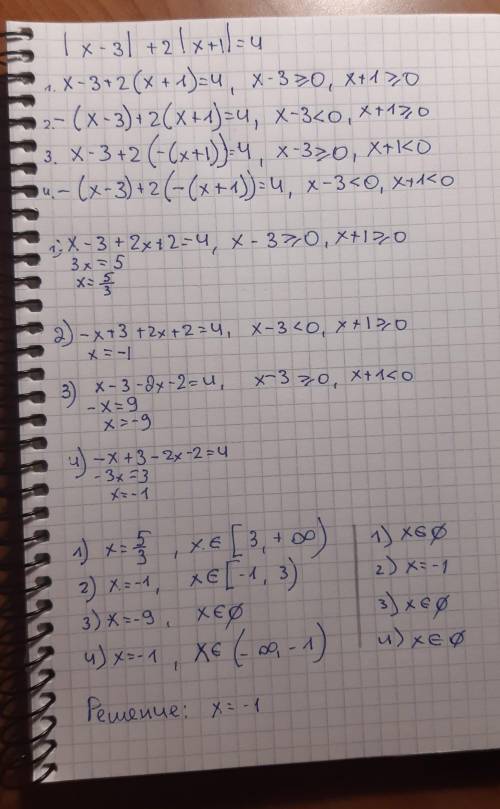 |x-3|+2|x+1|=4
1. x-3+2(x+1)=4, x-3≥0, x+1≥0
2. -(x-3)+2(x+1)=4, x-3<0, x+1≥0
3. x-3+2(-(x+1))=4, x-3≥0, x+1<0
4. -(x-3)+2(-(x+1))=4, x-3<0, x+1<0
1) x-3+2x+2=4, x-3≥0, x+1≥0
3x=5
x=5/3
2) -x+3+2x+2=4, x-3<0, x+1≥0
x=-1
3) x-3-2x-2=4, x-3≥0, x+1<0
-x=9
x=-9
4) -x+3-2x-2=4
-3x=3
x=-1
1) x=5/3, x∈[3,+∞) 1) x∈∅
2) x=-1, x∈[-1, 3) 2) x=-1
3) x=-9, x∈∅ 3) x∈∅
4) x=-1, x∈(-∞,-1) 4) x∈∅
Решение: x=-1